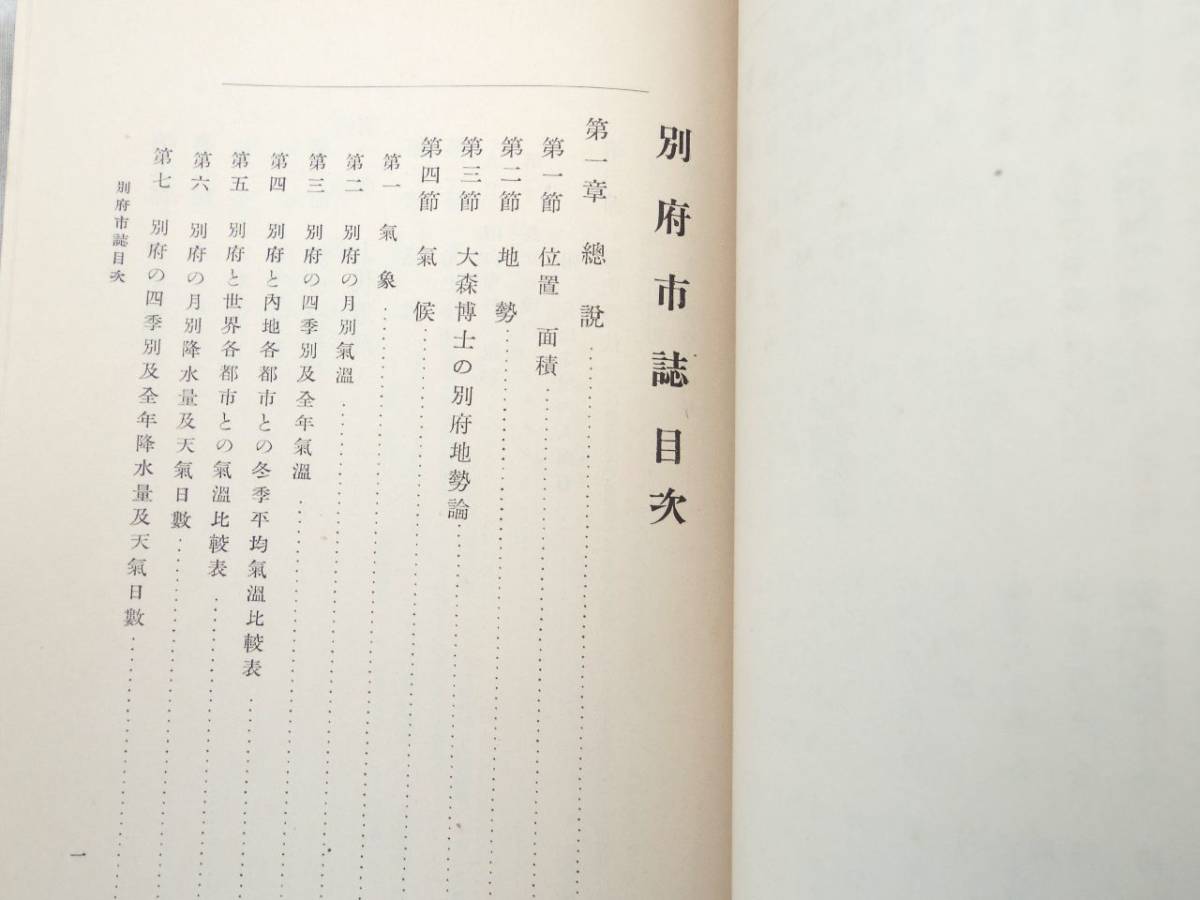 別府市誌目次
第一章 總說
第一節 位置 面積
第二節 地勢
第三節 大森博士の別府地勢論
第四節 氣候
第一 氣象
第二 別府の月別氣溫
第三 別府の四季別及全年氣溫
第四 別府と內地各都市との冬季平均氣溫比較表
第五 別府と世界各都市との氣溫比較表
第六 別府の月別降水量及天氣日數
第七 別府の四季別及全年降水量及天氣日數
別府市誌目次
一